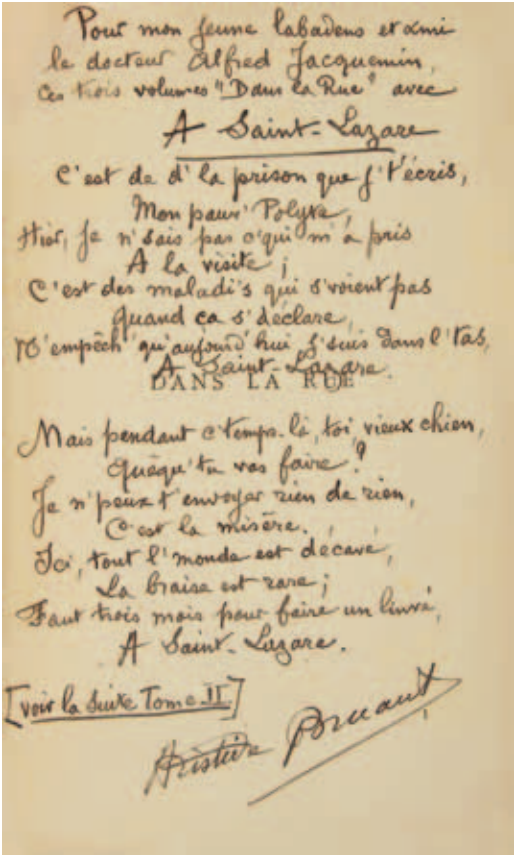 Pour mon jeune labadens et ami
le docteur Alfred Jacquemin,
Ces trois volumes "Dans la Rue" avec
A Saint-Lazare
C'est de d' la prison que j't'écris,
Mon pauv' Polyte,
Hier, je n'sais pas c'qui m'a pris
A la visite ;
C'est des maladi's qui s'voient pas
Quand ça s'déclare,
N'empêch' qu'aujourd'hui j'suis dans l'tas,
A Saint-Lazare.
DANS LA RUE
Mais pendant c'temps-là, toi, vieux chien,
Quéqu'tu vas faire ?
Je n'peux t'envoyer rien de rien,
C'est la misère.
Ici, tout l'monde est décavé,
La braise est rare ;
Faut trois mois pour faire un linvé,
A Saint-Lazare.
[voir la suite Tome II]
Aristide Bruant